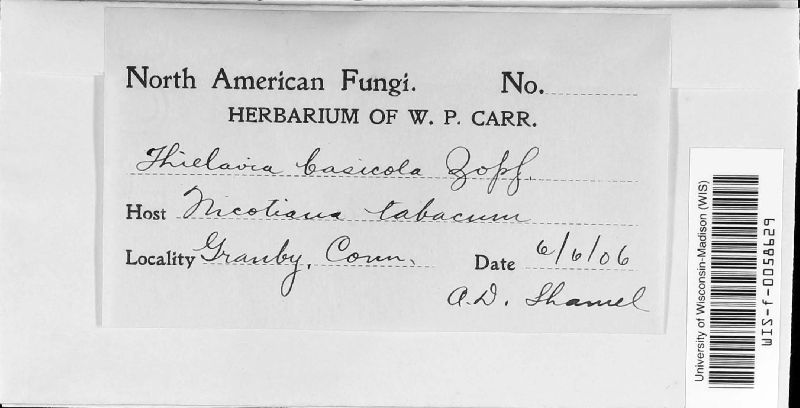 North American Fungi. No.
HERBARIUM OF W. P. CARR.
Thielavia basicola Zopf.
Host Nicotiana tabacum
Locality Granby, Conn. Date 6/6/06
A.D. Shamel
University of Wisconsin-Madison (WIS)
WIS-f-0058629